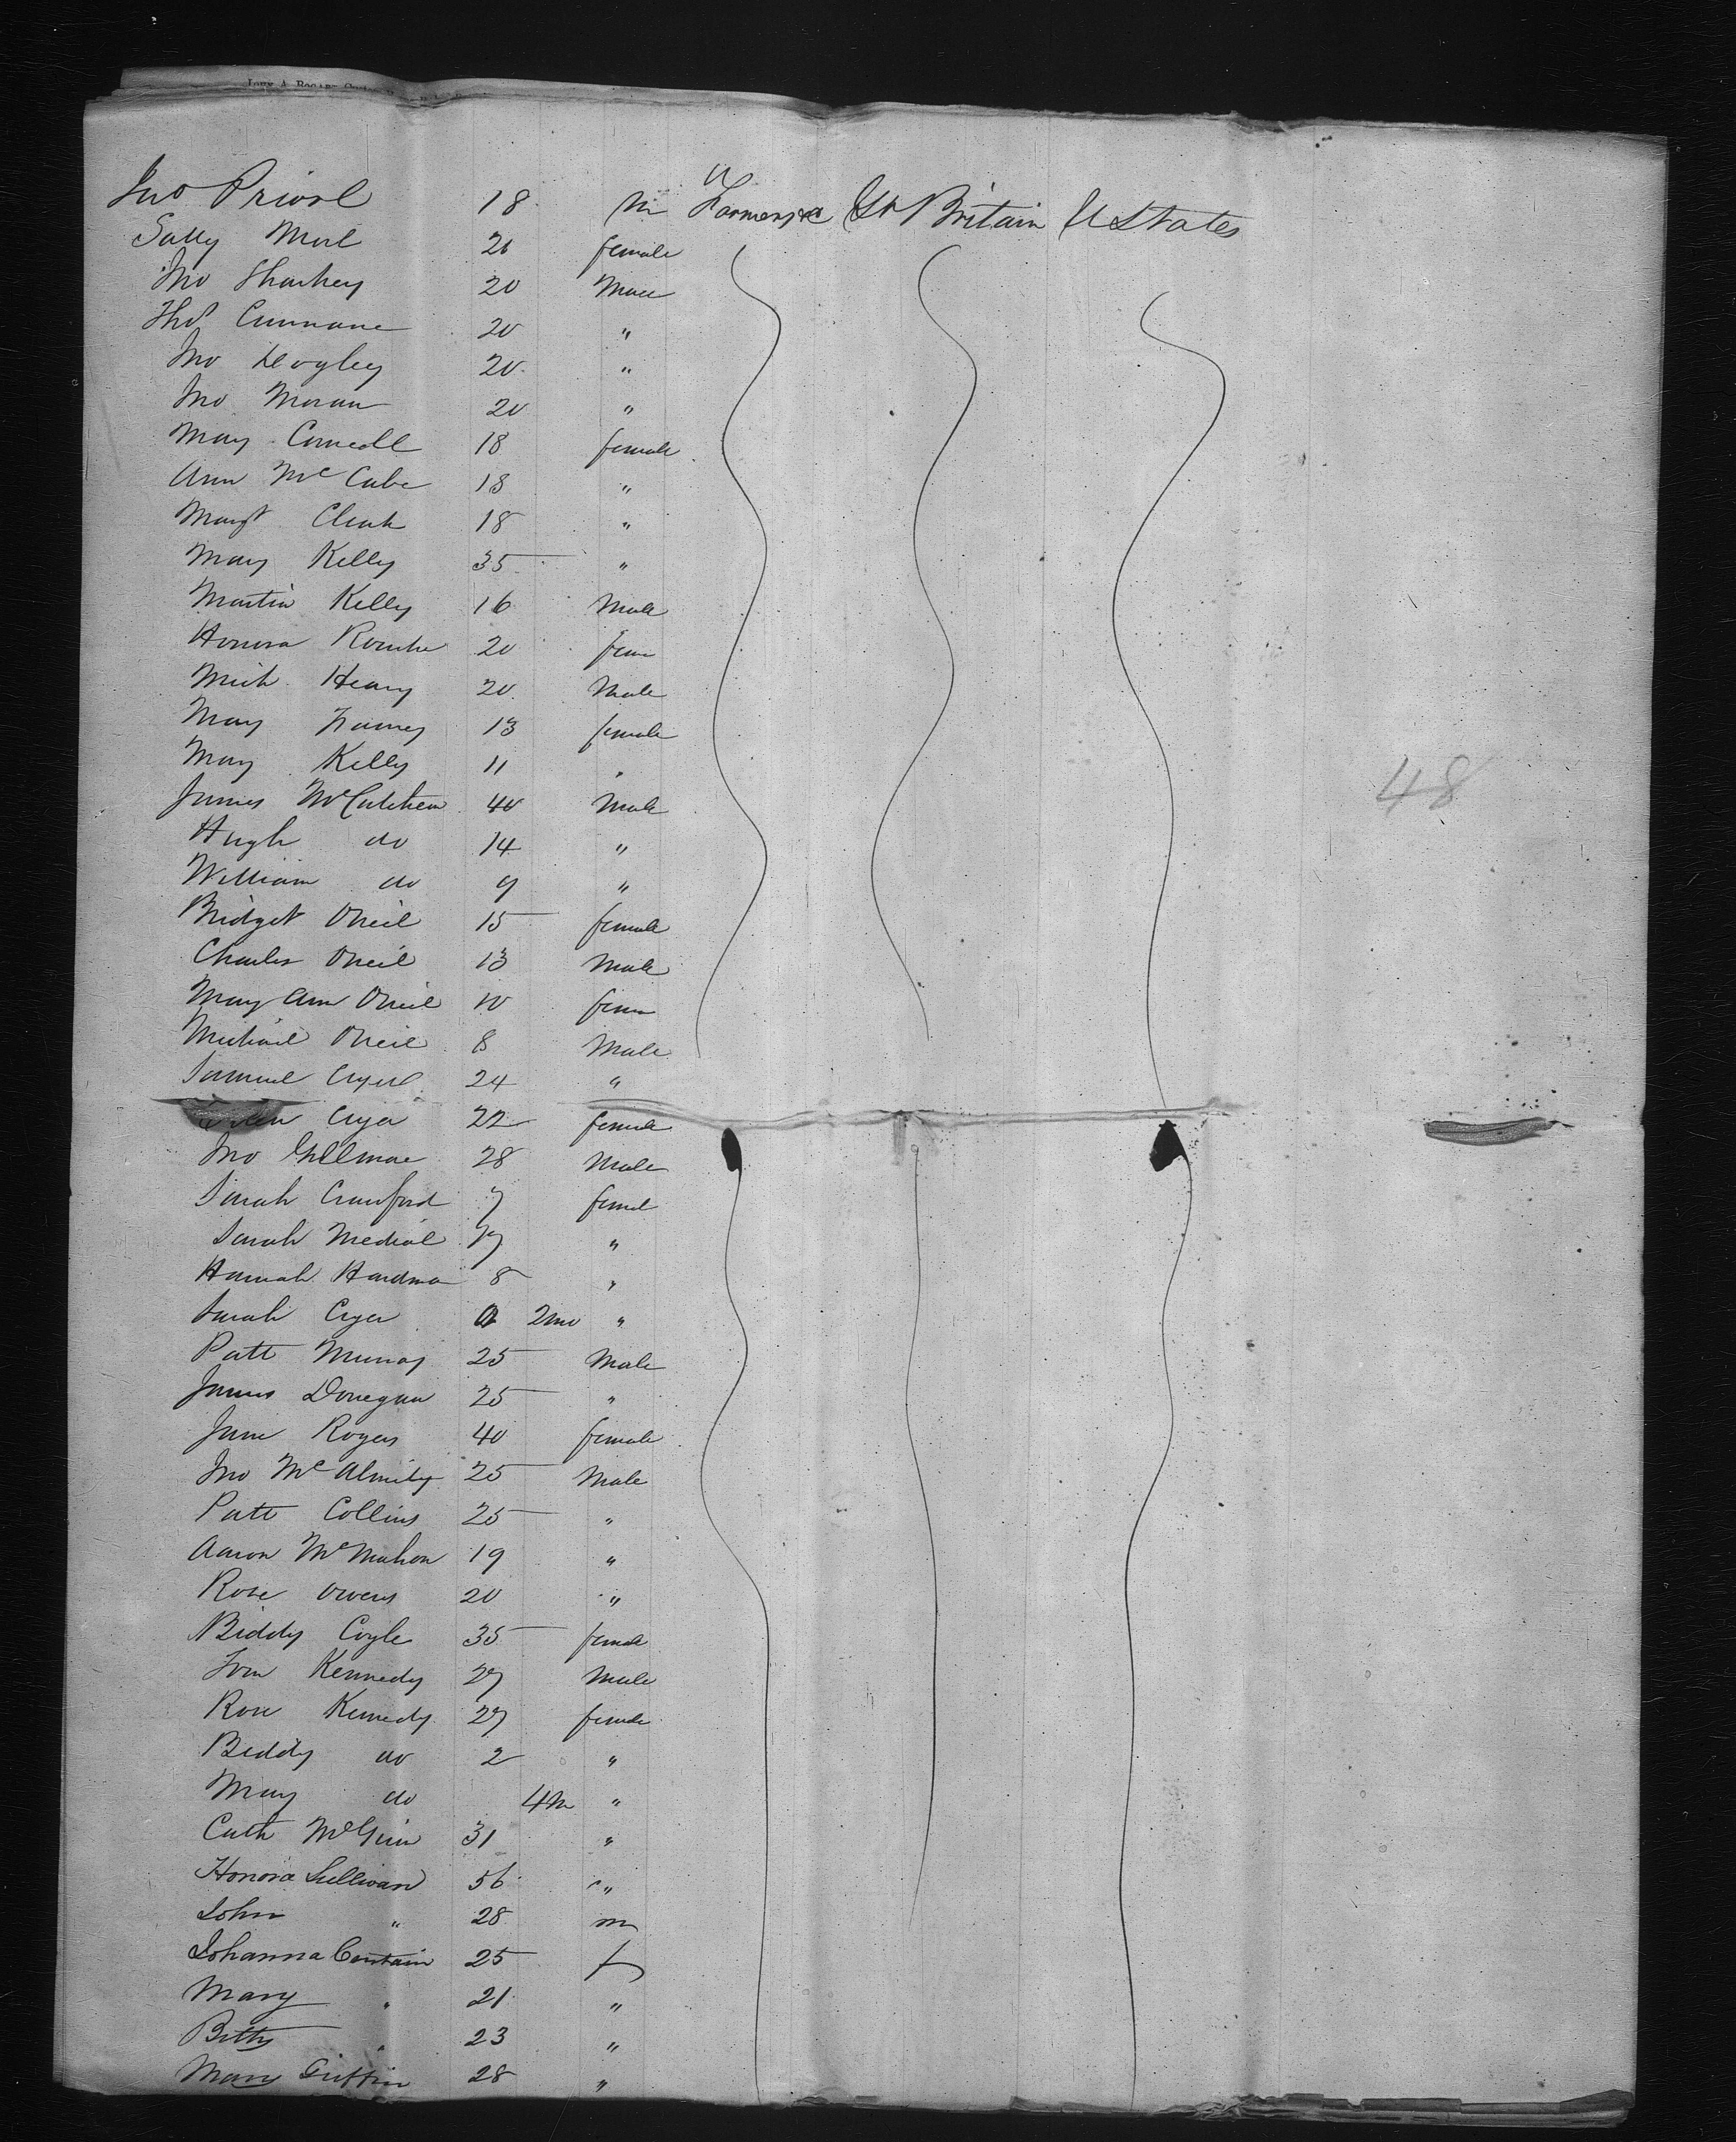 Jno Priorl 18 m Farmers &c Gt Britain U States
Sally Morl 26 female
Jno Sharkey 20 Male
Thos Cunnane 20 "
Jno Deogley 20 "
Jno Moran 20 "
Mary 18 female
Ann McCabe 18 "
Margt Clark 18 "
Mary Kelly 35 "
Martin Kelly 16 Male
Honora Rourke 20 fem
Mich Heany 20 Male
Mary 13 female
Mary Kelly 11 "
James McCutcheon 40 Male
Hugh do 14 "
William do 9 "
Bridget Oneil 15 female
Charles Oneil 13 Male
Mary Ann Oneil 10 fem
Michael Oneil 8 Male
Samuel Cryer 24 "
Cryer 22 female
Jno Gillmore 28 Male
Sarah Crawford 7 femal
Sarah Medial 7 "
Hannah Hardman 8 "
Sarah Cryer 2mo "
Patt Murray 25 Male
James Donegan 25 "
Jane Rogers 40 female
Jno McAlmily 25 Male
Patt Collins 25 "
Aaron McMahon 19 "
Rose Owens 20 "
Biddy Coyle 35 female
Tom Kennedy 27 Male
Rose Kennedy 27 female
Biddy do 2 "
Mary do 4m "
Cath McGinn 31 "
Honora Sullivan 56 "
John " 28 m
Johanna Contain 25 f
Mary " 21 "
Bitty " 23 "
Mary Griffin 28 "
48